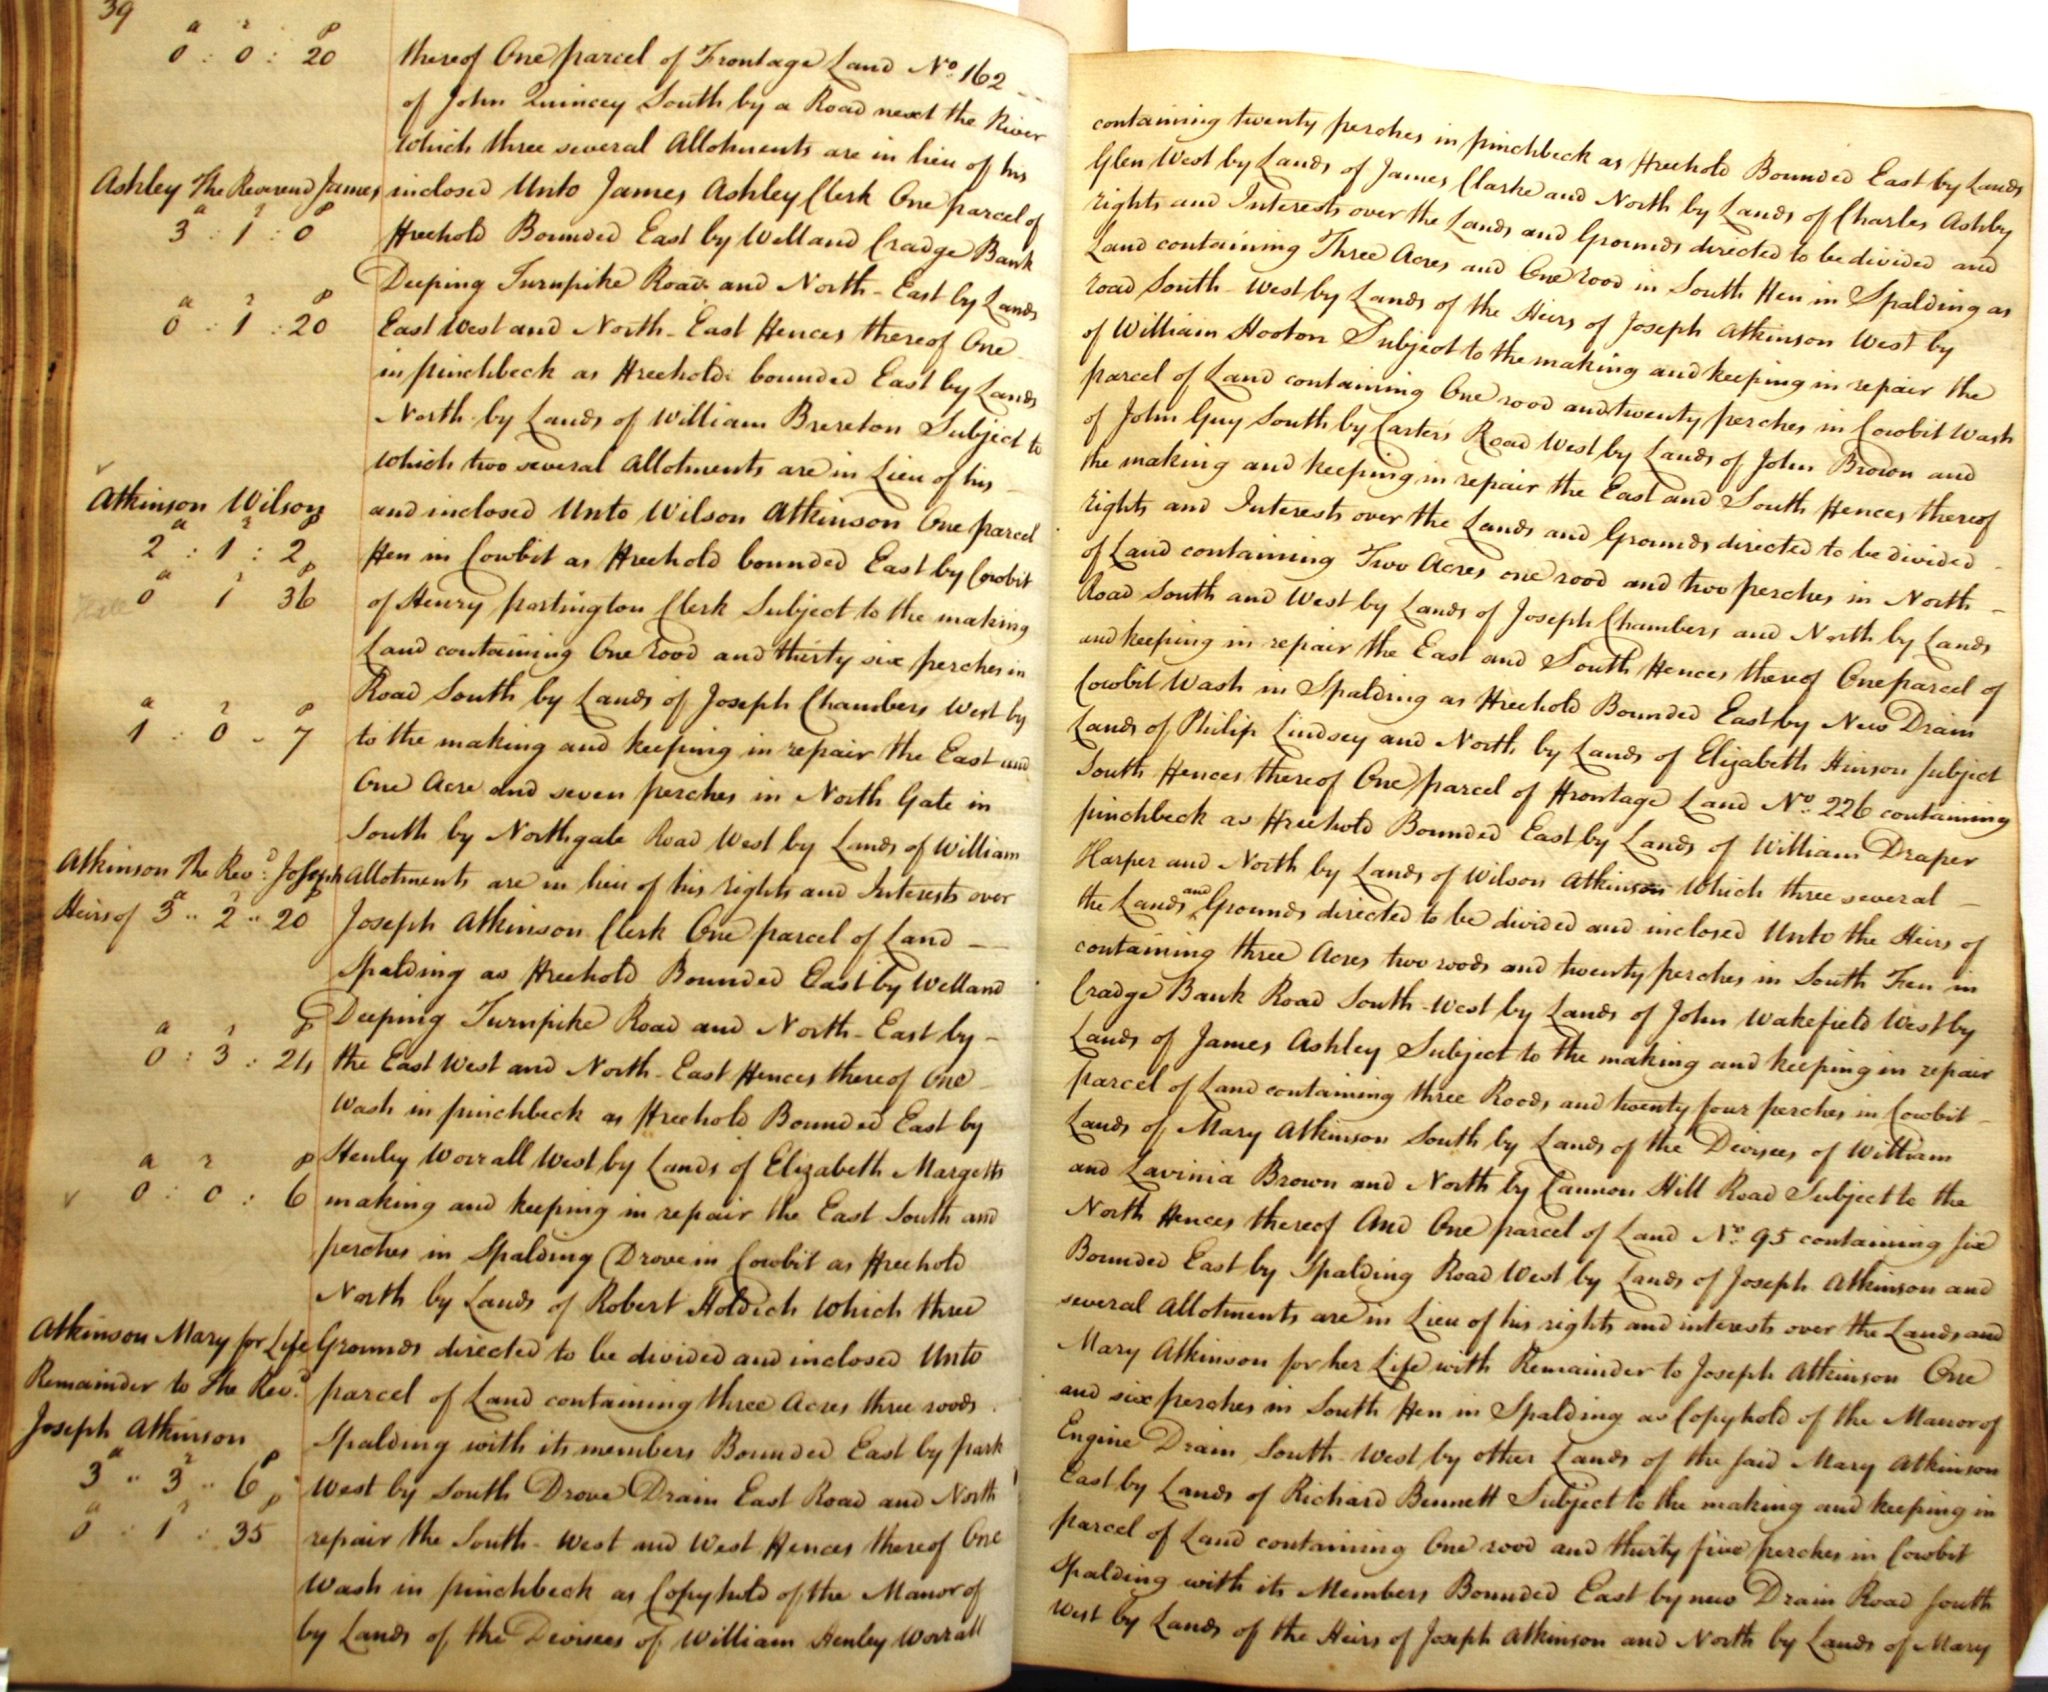 39
a r p
0 : 0 : 20
thereof One parcel of Frontage Land No. 162 -- containing twenty perches in pinchbeck as Freehold Bounded East by Lands
of John Quincey South by a Road next the River Glen West by Lands of James Clarke and North by Lands of Charles Ashby
which three several Allotments are in lieu of his rights and Interests over the Lands and Grounds directed to be divided and
Ashley The Reverend James
inclosed Unto James Ashley Clerk One parcel of Land containing Three Acres and One rood in South Fen in Spalding as
a r p
3 : 1 : 0
Freehold Bounded East by Welland Cradge Bank road South-West by Lands of the Heirs of Joseph Atkinson West by
Deeping Turnpike Road and North-East by Lands of William Hooton Subject to the making and keeping in repair the
a r p
0 : 1 : 20
East West and North-East Fences thereof One parcel of Land containing One rood and twenty perches in Cowbit Wash
in pinchbeck as Freehold bounded East by Lands of John Guy South by Carters Road West by Lands of John Brown and
North by Lands of William Brereton Subject to the making and keeping in repair the East and South Fences thereof
which two several Allotments are in Lieu of his rights and Interests over the Lands and Grounds directed to be divided
Atkinson Wilson
and inclosed Unto Wilson Atkinson One parcel of Land containing Two Acres one rood and two perches in North
a r p
2 : 1 : 2
Fen in Cowbit as Freehold bounded East by Cowbit Road South and West by Lands of Joseph Chambers and North by Lands
a r p
0 1 36
of Henry partington Clerk Subject to the making and keeping in repair the East and South Fences thereof One parcel of
Land containing One rood and thirty six perches in Cowbit Wash in Spalding as Freehold Bounded East by New Drain
Road South by Lands of Joseph Chambers West by Lands of Philip Lindsey and North by Lands of Elizabeth Hinson subject
a r p
1 : 0 - 7
to the making and keeping in repair the East and South Fences thereof One parcel of Frontage Land No. 226 containing
One Acre and seven perches in North Gate in pinchbeck as Freehold Bounded East by Lands of William Draper
South by Northgate Road West by Lands of William Harper and North by Lands of Wilson Atkinson which three several
Atkinson The Revd. Joseph
Allotments are in lieu of his rights and Interests over the Lands and Grounds directed to be divided and inclosed Unto the Heirs of
a r p
Heirs of 3 .. 2 .. 20
Joseph Atkinson Clerk One parcel of Land -- containing three Acres two roods and twenty perches in South Fen in
Spalding as Freehold Bounded East by Welland Cradge Bank Road South-West by Lands of John Wakefield West by
Deeping Turnpike Road and North-East by - Lands of James Ashley Subject to the making and keeping in repair
a r p
0 : 3 : 24
the East West and North-East Fences thereof One parcel of Land containing three Roods and twenty four perches in Cowbit
Wash in pinchbeck as Freehold Bounded East by Lands of Mary Atkinson South by Lands of the Devisees of William
Henley Worrall West by Lands of Elizabeth Margetts and Lavinia Brown and North by Cannon Hill Road Subject to the
a r p
0 : 0 : 6
making and keeping in repair the East South and North Fences thereof And One parcel of Land No. 95 containing six
perches in Spalding Drove in Cowbit as Freehold Bounded East by Spalding Road West by Lands of Joseph Atkinson and
North by Lands of Robert Holdich which three several Allotments are in Lieu of his rights and interests over the Lands and
Atkinson Mary for Life
Grounds directed to be divided and inclosed Unto Mary Atkinson for her Life with Remainder to Joseph Atkinson One
Remainder to The Revd.
parcel of Land containing three Acres three roods and six perches in South Fen in Spalding as Copyhold of the Manor of
Joseph Atkinson
Spalding with its members Bounded East by park Engine Drain South-West by other Lands of the said Mary Atkinson
a r p
3 .. 3 .. 6
West by South Drove Drain East Road and North East by Lands of Richard Bennett Subject to the making and keeping in
a r p
0 : 1 : 35
repair the South-West and West Fences thereof One parcel of Land containing One rood and thirty five perches in Cowbit
Wash in pinchbeck as Copyhold of the Manor of Spalding with its Members Bounded East by new Drain Road South
by Lands of the Devisees of William Henley Worrall West by Lands of the Heirs of Joseph Atkinson and North by Lands of Mary